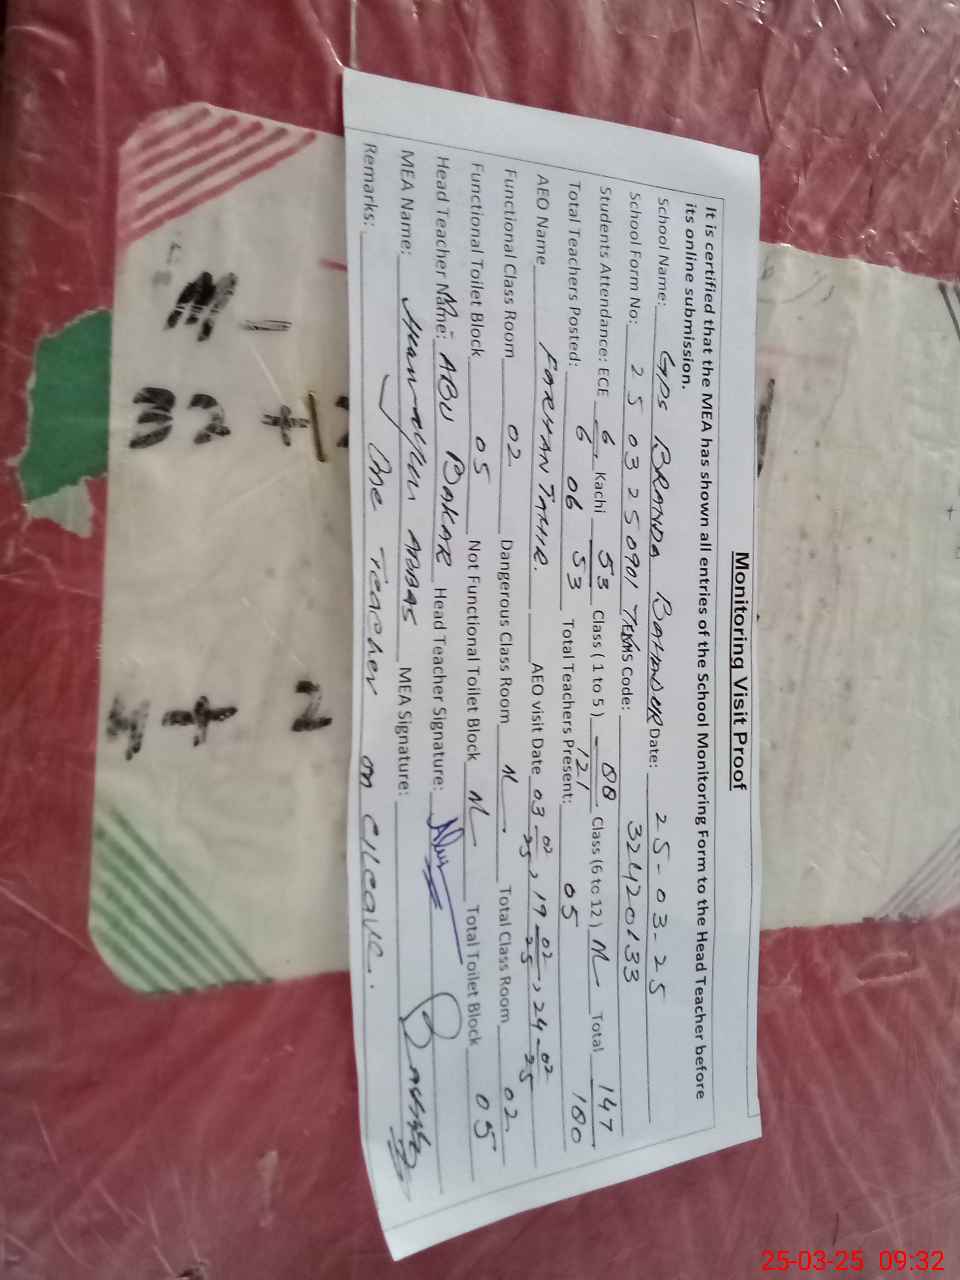 Monitoring Visit Proof
It is certified that the MEA has shown all entries of the School Monitoring Form to the Head Teacher before
its online submission.
School Name: GPS BRANDA BAHADUR Date: 25-03-25
School Form No: 2 5 03 2 250901 Code: 32420133
Students Attendance: ECE 6/6 Kachi 53/53 Class (1 to 5) 88/121 Class (6 to 12) Nil Total 147/180
Total Teachers Posted: 06 Total Teachers Present: 05
AEO Name FARHAN TAHIR. AEO visit Date 03-02-25, 19-02-25, 24-02-25
Functional Class Room 02 Dangerous Class Room N Total Class Room 02
Functional Toilet Block 05 Not Functional Toilet Block N Total Toilet Block 05
Head Teacher Name: ABU BAKAR Head Teacher Signature:
MEA Name: ABBAS MEA Signature:
Remarks: One Teacher on C/Leave.
M -
32 +
4+ 2
25-03-25 09:32